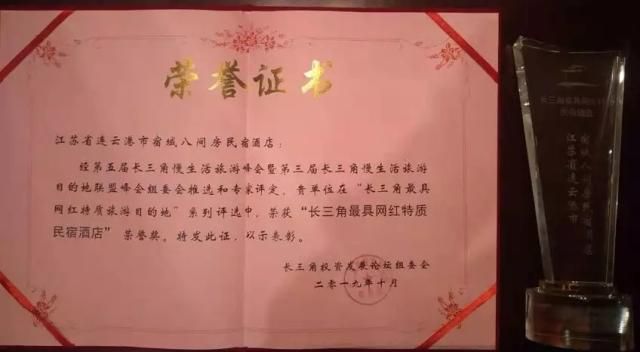 荣誉证书
江苏省连云港市宿城八间房民宿酒店：
经第五届长三角慢生活旅游峰会暨第三届长三角慢生活旅游
目的地联盟峰会组委会推选和专家评定，贵单位在“长三角最具
网红特质旅游目的地”系列评选中，荣获“长三角最具网红特质
民宿酒店”荣誉奖。特发此证，以示表彰。
长三角投资发展论坛组委会
二〇一九年十月
长三角最具网红特质
民宿酒店
江苏省连云港市
宿城八间房民宿酒店